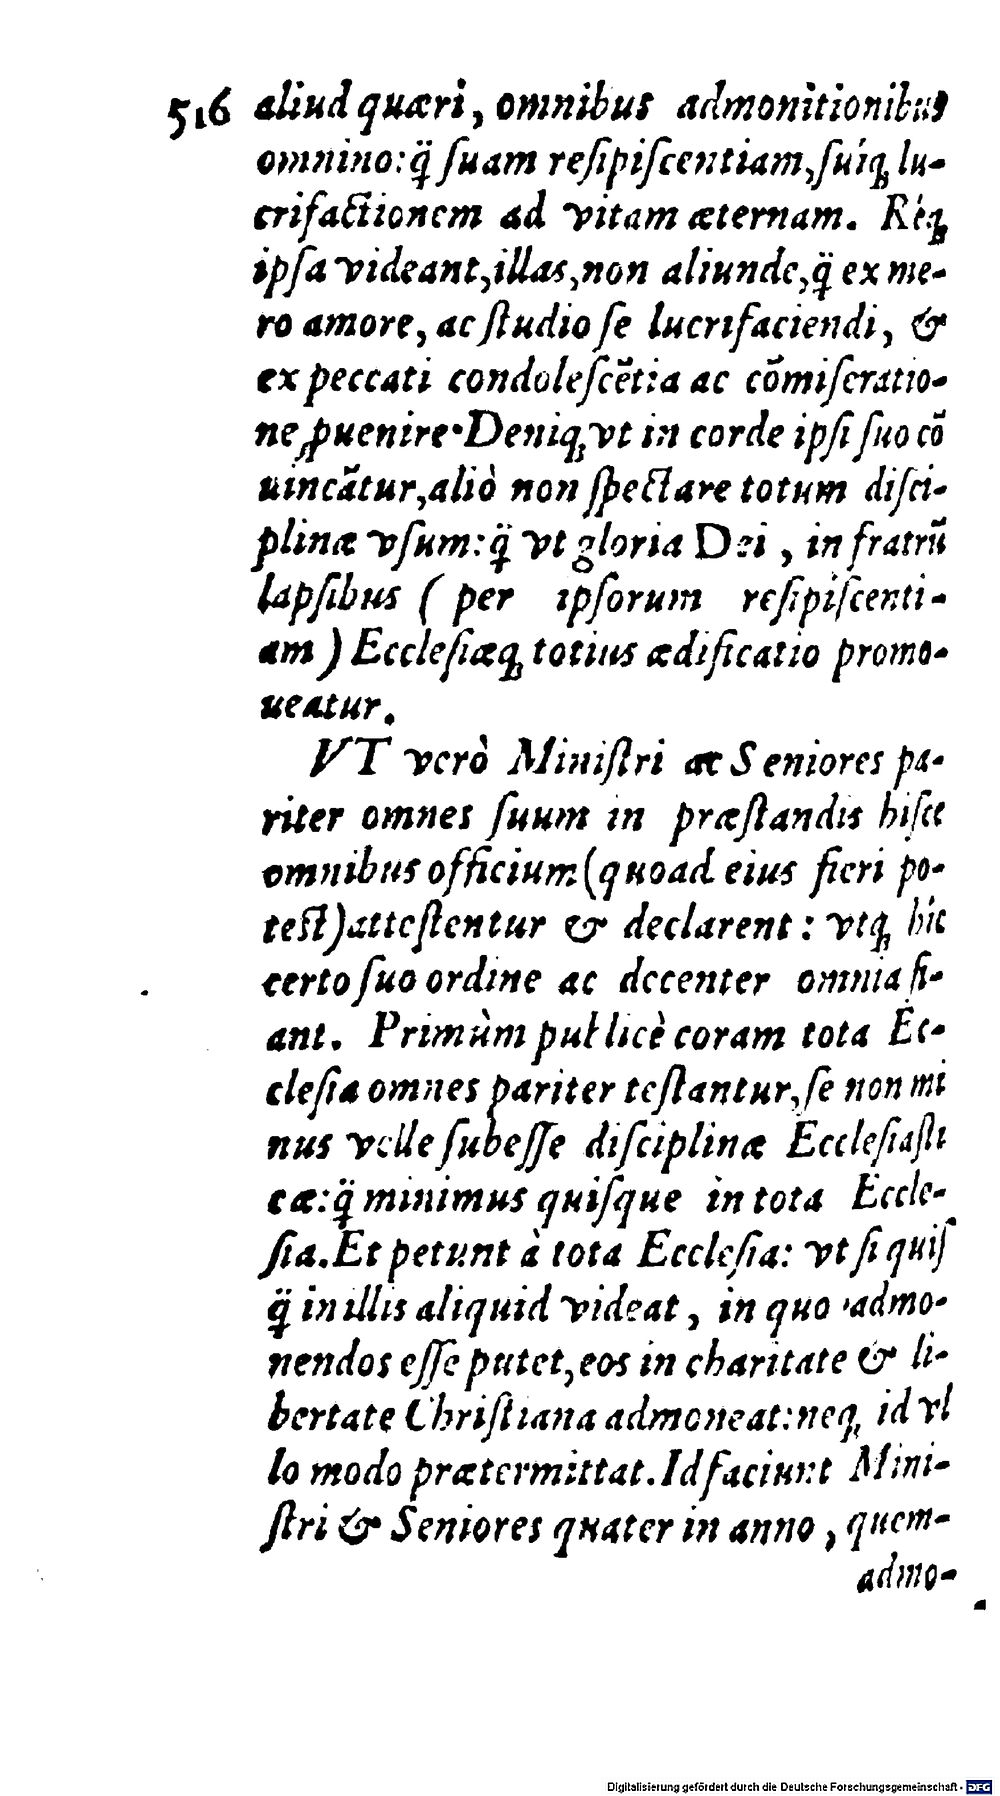 516 aliud quæri, omnibus admonitionibus
omnino: q̃ ſuam reſipiſcentiam, ſuiq́; lu-
crifactionem ad vitam æternam. Réq;
ipſa videant, illas, non aliunde, q̃ ex me-
ro amore, ac ſtudio ſe lucrifaciendi, &
ex peccati condoleſcẽtia ac cõmiſeratio-
ne ꝓuenire. Deniq; vt in corde ipſi ſuo cõ
uincãtur, aliò non ſpectare totum diſci-
plinæ vſum: q̃ vt gloria Dei, in fratrũ
lapſibus ( per ipſorum reſipiſcenti-
am ) Eccleſiæq; totius ædificatio promo-
ueatur.
VT verò Miniſtri ac Seniores pa-
riter omnes ſuum in præſtandis hiſce
omnibus officium (quoad eius fieri po-
teſt) atteſtentur & declarent: vtq; hîc
certo ſuo ordine ac decenter omnia fi-
ant. Primùm publicè coram tota Ec-
cleſia omnes pariter teſtantur, ſe non mi
nus velle ſubeſſe diſciplinæ Eccleſiaſti
cæ: q̃ minimus quiſque in tota Eccle-
ſia. Et petunt à tota Eccleſia: vt ſi quiſ
q̃ in illis aliquid videat, in quo admo-
nendos eſſe putet, eos in charitate & li-
bertate Chriſtiana admoneat: neq; id vl
lo modo prætermittat. Id faciunt Mini-
ſtri & Seniores quater in anno, quem-
admo-
Digitalisierung gefördert durch die Deutsche Forschungsgemeinschaft - DFG